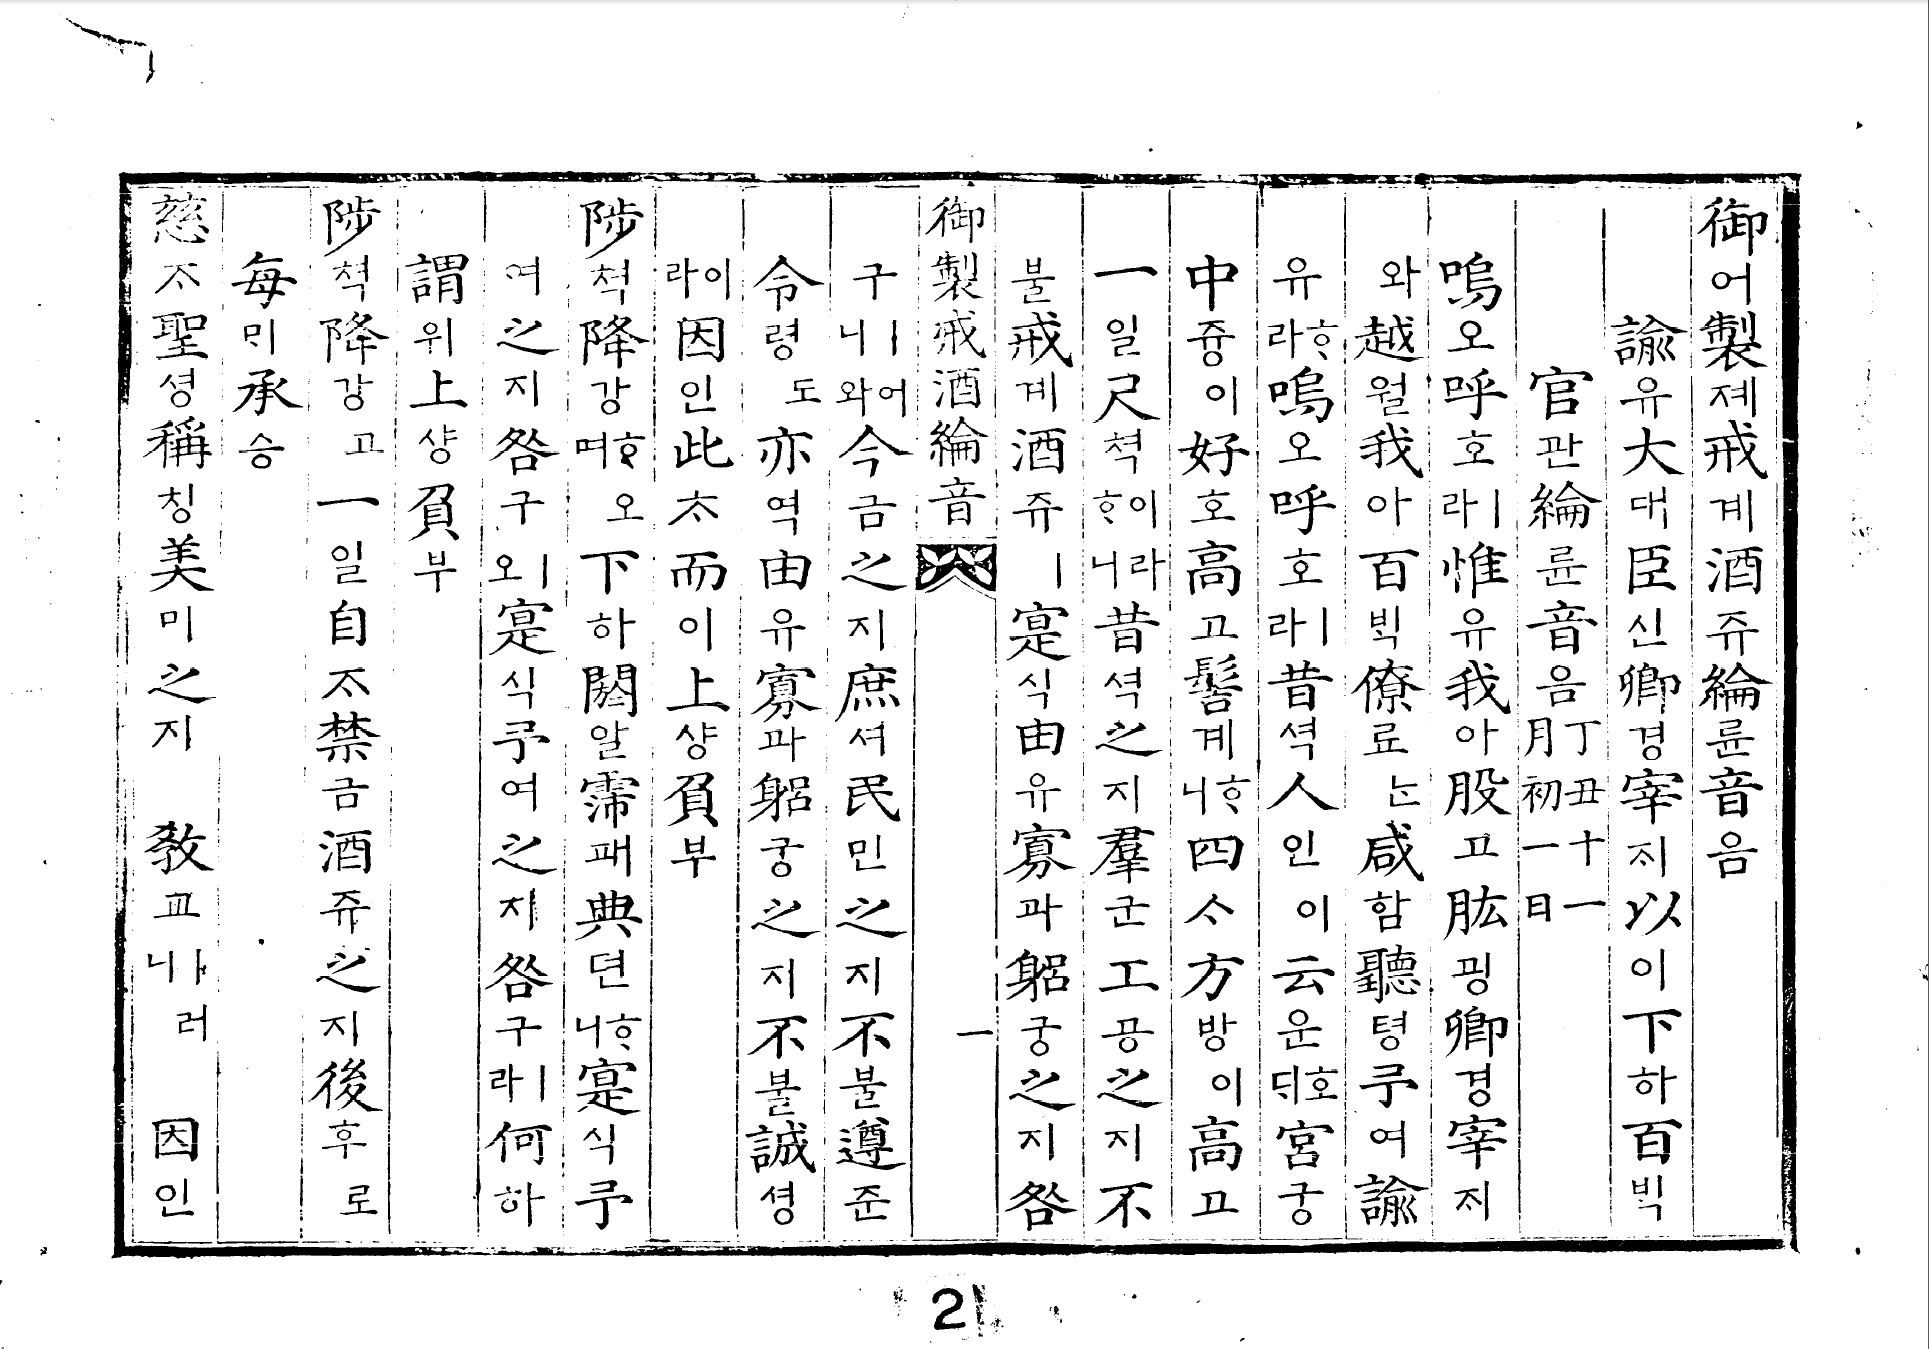 御어製졔戒계酒쥬綸륜音음
諭유大대臣신卿경宰ᄌᆡ以이下하百ᄇᆡᆨ
官관綸륜音음丁丑十一月初一日
嗚오呼호ㅣ라惟유我아股고肱굉卿경宰ᄌᆡ
와越월我아百ᄇᆡᆨ僚료ᄂᆞᆫ咸함聽텽予여諭
유ᄒᆞ라嗚오呼호ㅣ라昔셕人인이云운호ᄃᆡ宮궁
中즁이好호高고髻계ᄒᆞ니四ᄉᆞ方방이高고
一일尺쳑이라ᄒᆞ니昔셕之지羣군工공之지不
불戒계酒쥬ㅣ寔식由유寡과躳궁之지咎
御製戒酒綸音 一
구ㅣ어니와今금之지庶셔民민之지不불遵준
令령도亦역由유寡과躳궁之지不불誠셩
이라因인此ᄎᆞ而이上샹負부
陟쳑降강ᄒᆞ오며下하閼알霈패典뎐ᄒᆞ니寔식予
여之지咎구ㅣ오寔식予여之지咎구ㅣ라何하
謂위上샹負부
陟쳑降강고一일自ᄌᆞ禁금酒쥬之지後후로
每ᄆᆡ承승
慈ᄌᆞ聖셩稱칭美미之지 敎교ㅣ러니 因인
2